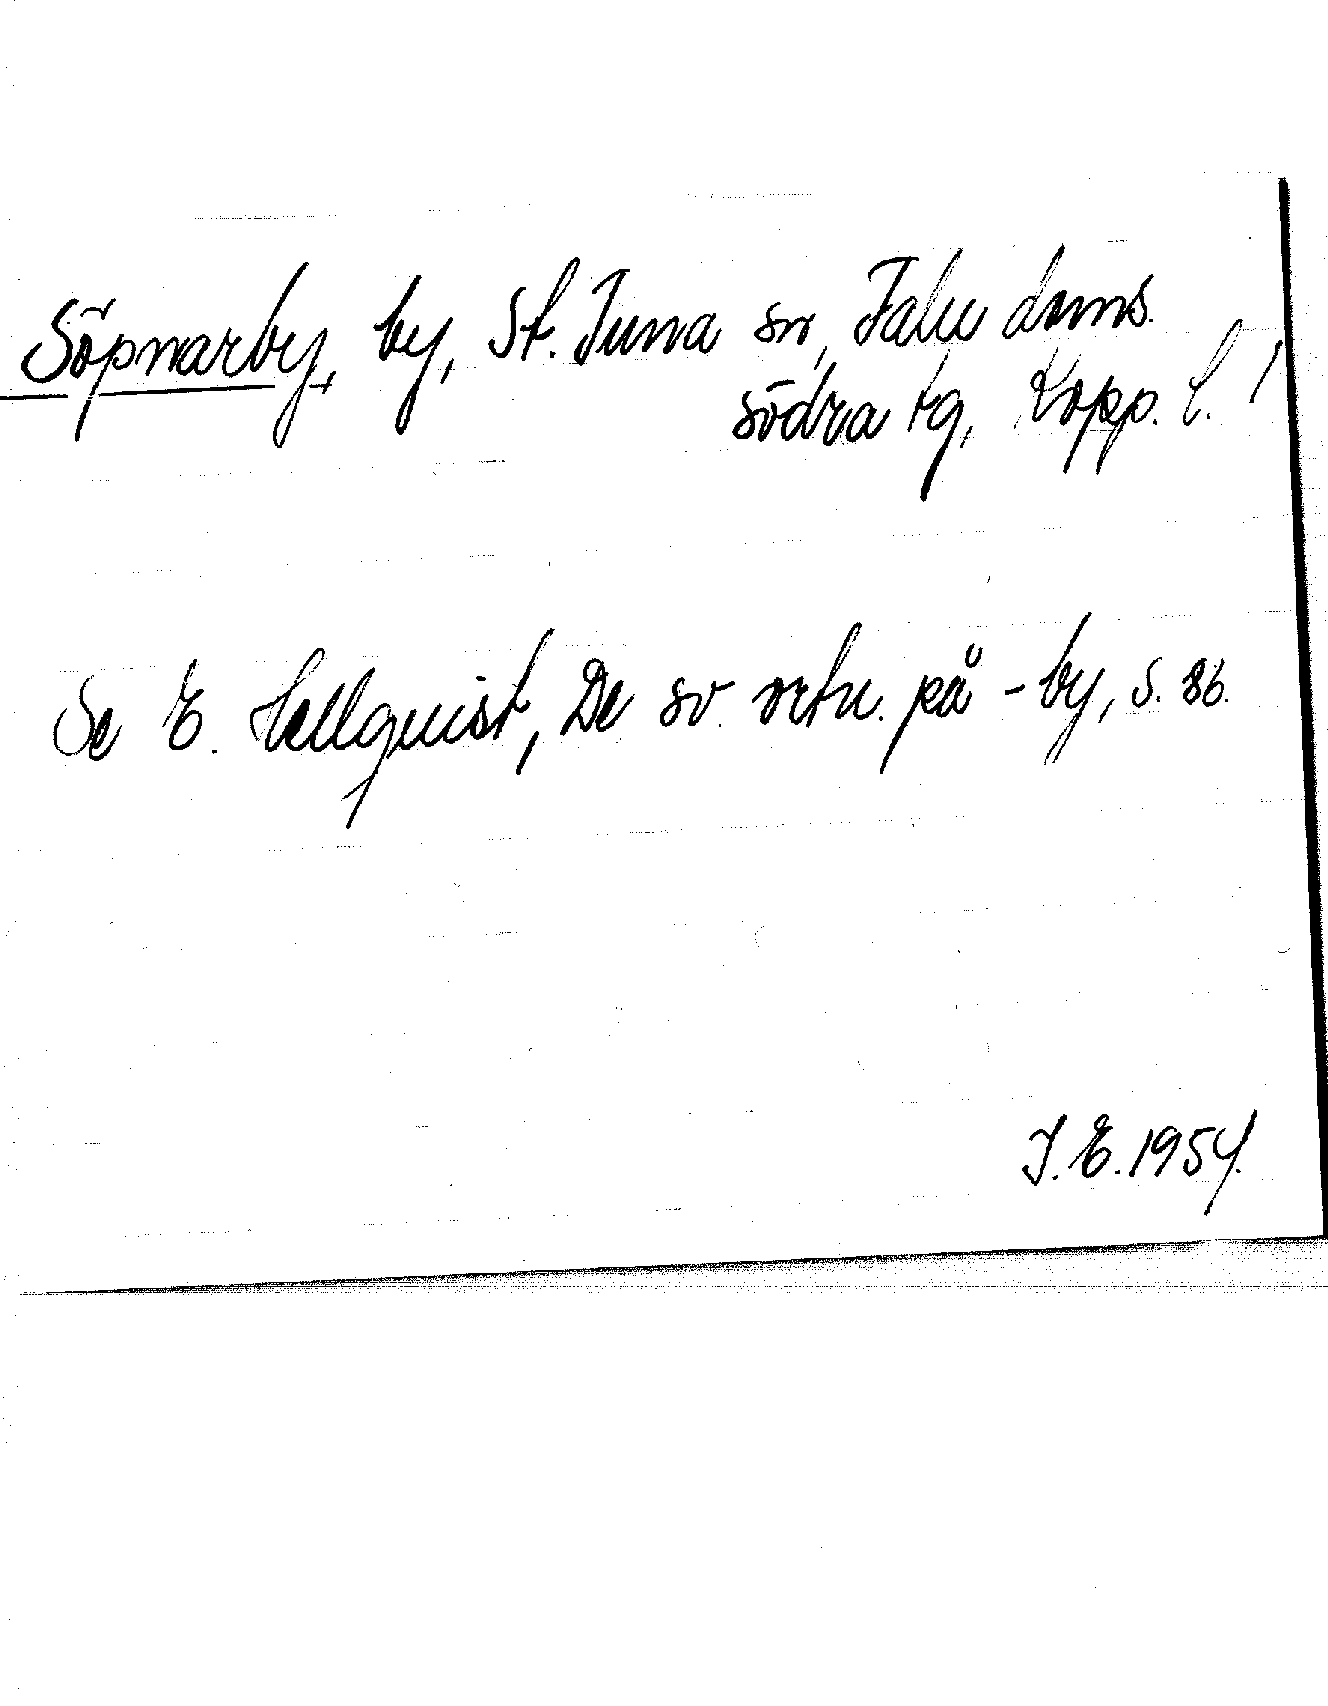 Söpmarby, by, St. Tuna sn, Falu doms.
södra tg, Kopp. l.
Se E. Hellquist, De sv. ortn. på -by, s. 86.
I. E. 1954.